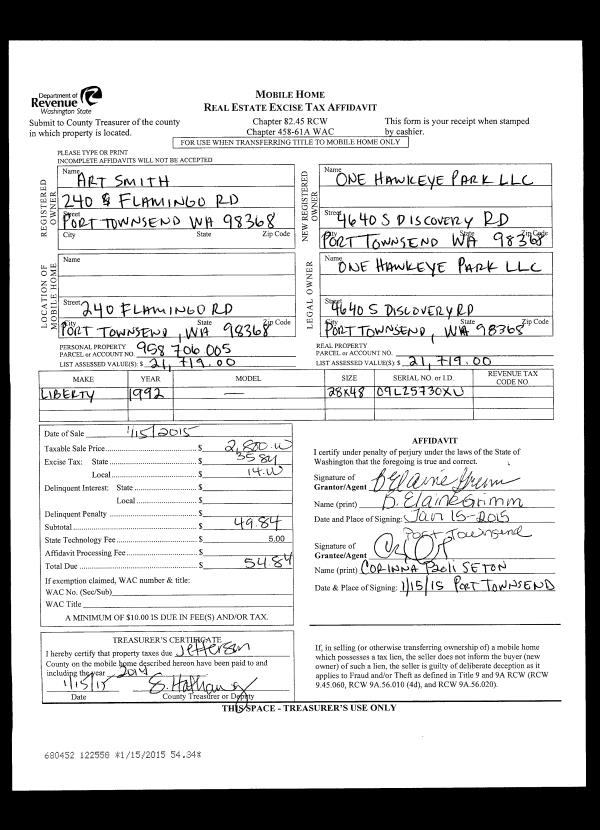 Department of
Revenue
Washington State
MOBILE HOME
REAL ESTATE EXCISE TAX AFFIDAVIT
Submit to County Treasurer of the county
in which property is located.
Chapter 82.45 RCW
Chapter 458-61A WAC
This form is your receipt when stamped
by cashier.
FOR USE WHEN TRANSFERRING TITLE TO MOBILE HOME ONLY
PLEASE TYPE OR PRINT
INCOMPLETE AFFIDAVITS WILL NOT BE ACCEPTED
REGISTERED OWNER
Name ART SMITH
240 FLAMINGO RD
Street
PORT TOWNSEND WA 98368
City State Zip Code
NEW REGISTERED OWNER
Name ONE HAWKEYE PARK LLC
Street 4640 S DISCOVERY RD
City State Zip Code
PORT TOWNSEND WA 98368
LOCATION OF MOBILE HOME
Name
Street 240 FLAMINGO RD
City State Zip Code
PORT TOWNSEND, WA 98368
LEGAL OWNER
Name ONE HAWKEYE PARK LLC
Street 4640 S DISCOVERY RD
City State Zip Code
PORT TOWNSEND, WA 98368
PERSONAL PROPERTY
PARCEL or ACCOUNT NO. 958 706 005
LIST ASSESSED VALUE(S): $ 21,719.00
REAL PROPERTY
PARCEL or ACCOUNT NO.
LIST ASSESSED VALUE(S): $ 21,719.00
MAKE YEAR MODEL SIZE SERIAL NO. or I.D. REVENUE TAX CODE NO.
LIBERTY 1992 — 28X48 09L25730XU
Date of Sale 1/15/2015
Taxable Sale Price $ 2,800.00
Excise Tax: State $ 35.84
Local $ 14.00
Delinquent Interest: State $
Local $
Delinquent Penalty $
Subtotal $ 49.84
State Technology Fee $ 5.00
Affidavit Processing Fee $
Total Due $ 54.84
If exemption claimed, WAC number & title:
WAC No. (Sec/Sub)
WAC Title
A MINIMUM OF $10.00 IS DUE IN FEE(S) AND/OR TAX.
AFFIDAVIT
I certify under penalty of perjury under the laws of the State of
Washington that the foregoing is true and correct.
Signature of
Grantor/Agent B Elaine Grimm
Name (print) B. Elaine Grimm
Date and Place of Signing: Jan 15-2015
Port Townsend
Signature of
Grantee/Agent
Name (print) CORINNA PAOLI SETON
Date & Place of Signing: 1/15/15 PORT TOWNSEND
TREASURER'S CERTIFICATE
I hereby certify that property taxes due Jefferson
County on the mobile home described hereon have been paid to and
including the year 2014
1/15/15
Date County Treasurer or Deputy
If, in selling (or otherwise transferring ownership of) a mobile home
which possesses a tax lien, the seller does not inform the buyer (new
owner) of such a lien, the seller is guilty of deliberate deception as it
applies to Fraud and/or Theft as defined in Title 9 and 9A RCW (RCW
9.45.060, RCW 9A.56.010 (4d), and RCW 9A.56.020).
THIS SPACE - TREASURER'S USE ONLY
680452 122558 *1/15/2015 54.34*